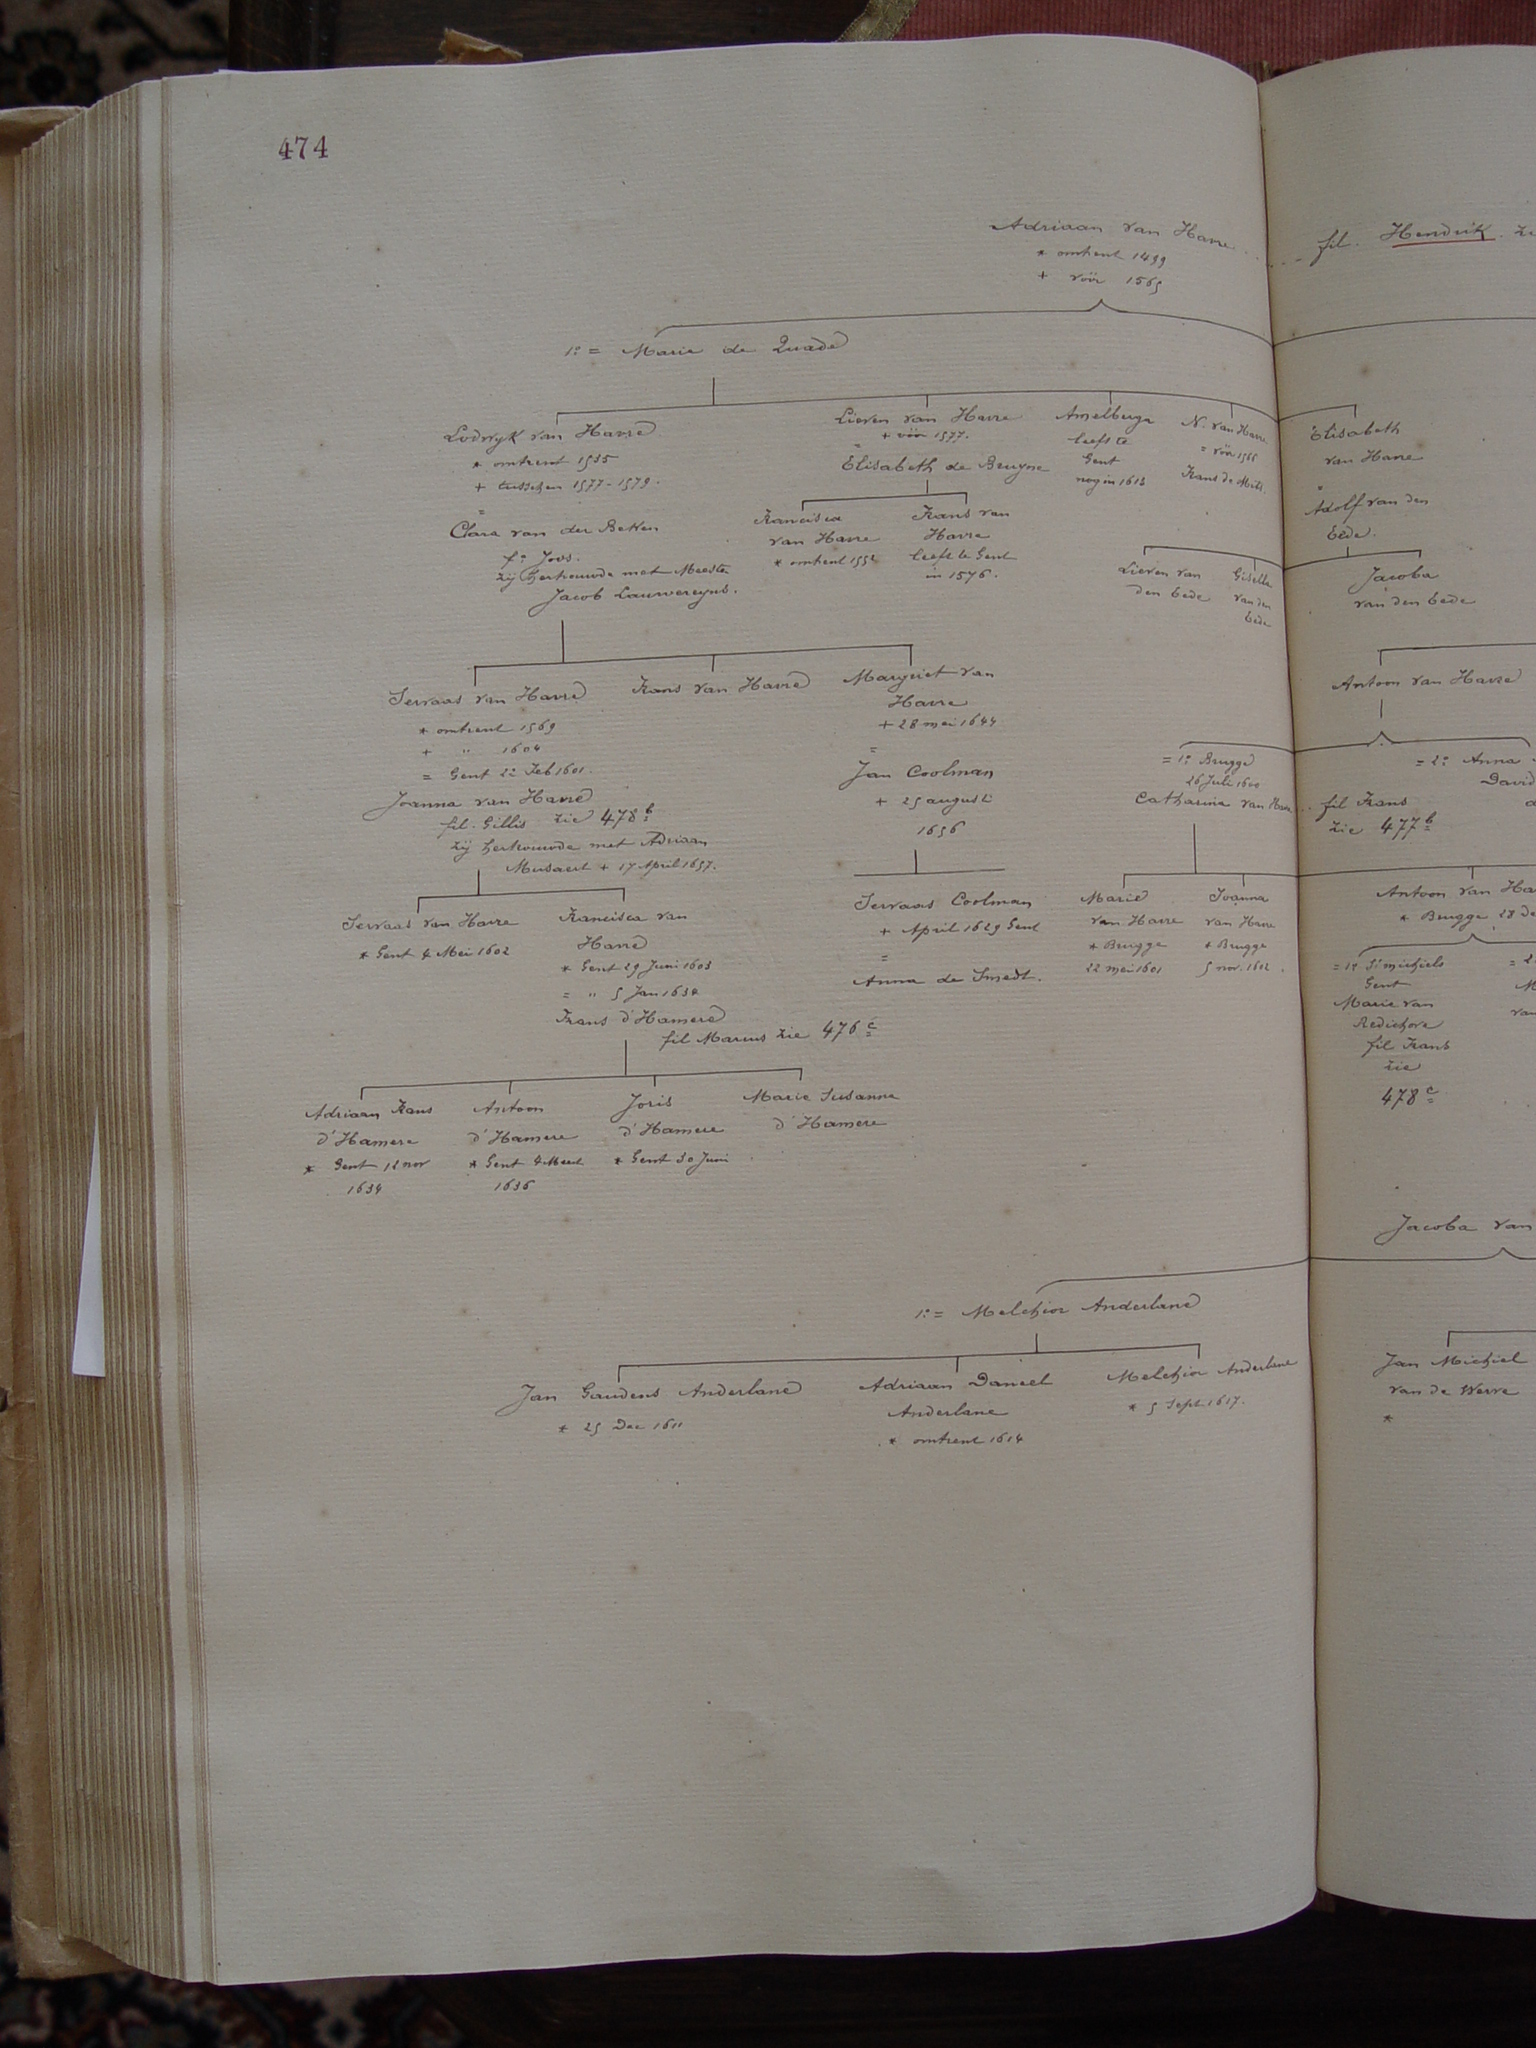 474
Adriaan van Havre
* omtrent 1499
+ vóór 1565
fil. Hendrik
1º = Marie de Quade
Lodwyk van Havre
* omtrent 1535
+ tusschen 1577-1579.
=
Clara van der Beken
fª Joos.
zij hertrouwde met Meester
Jacob Lauwereyns.
Lieven van Havre
+ vóór 1577.
=
Elisabeth de Bruyne
Amelberga
leeft te
Gent
nog in 1613
N. van Havre
= vóór 1566
Frans de Mil.
Elisabeth
van Havre
=
Adolf van den
Eede.
Francisca
van Havre
* omtrent 1552
Frans van
Havre
leeft te Gent
in 1576.
Lieven van
den Eede
Giselle
van den
Eede
Jacoba
van den Eede
Servaas van Havre
* omtrent 1569
+ " 1604
= Gent 22 Feb 1601.
Joanna van Havre
fil. Gillis zie 478 b
zij hertrouwde met Adriaan
Musaert + 17 April 1657.
Frans van Havre
Margriet van
Havre
+ 28 mei 1644
=
Jan Coolman
+ 25 augusti
1656
Antoon van Havre
= 1º Brugge
26 Juli 1600
Catharina van Havre .. fil Frans
zie 477 b
= 2º Anna
David
Servaas van Havre
* Gent 4 Mei 1602
Francisca van
Havre
* Gent 29 Juni 1603
= " 5 Jan 1634
Frans d'Hamere
fil Marius zie 476 c
Servaas Coolman
+ April 1629 Gent
=
Anna de Smedt.
Marie
van Havre
* Brugge
22 mei 1601
Joanna
van Havre
* Brugge
5 nov. 1602.
Antoon van Ha
* Brugge 28 De
= 1º St michiels
Gent
Marie van
Redichove
fil Frans
zie
478 c
= 2
M
van
Adriaan Frans
d'Hamere
* Gent 12 nov
1634
Antoon
d'Hamere
* Gent 4 Meert
1636
Joris
d'Hamere
* Gent 30 Juni
Marie Susanna
d'Hamere
Jacoba van
1º = Melchior Anderlane
Jan Gaudens Anderlane
* 25 Dec 1611
Adriaan Daneel
Anderlane
* omtrent 1614
Melchior Anderlane
* 5 Sept 1617.
Jan Michiel
van de Werve
*